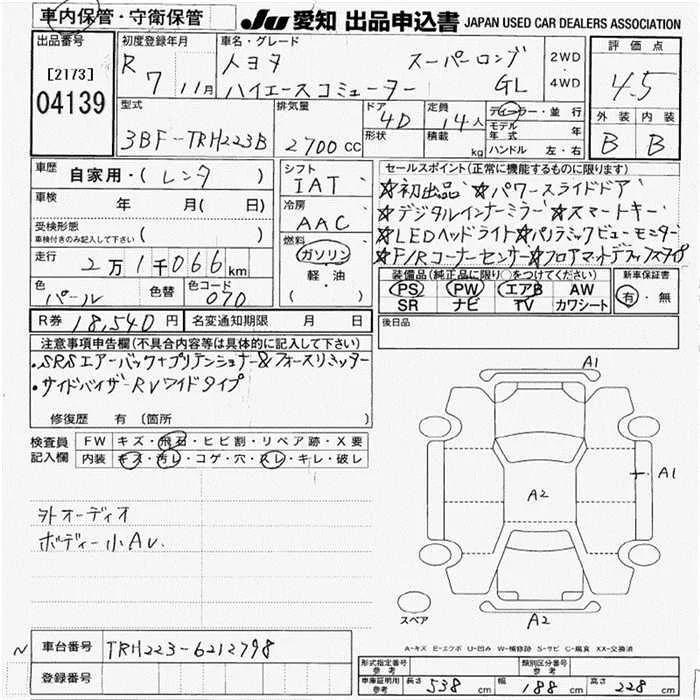 車内保管・守衛保管
JU 愛知 出品申込書 JAPAN USED CAR DEALERS ASSOCIATION
出品番号
[2173]
04139
初度登録年月
R 7 11月
車名・グレード
トヨタ スーパーロング
ハイエースコミューター GL
2WD
・
4WD
評価点
4.5
外装 内装
B B
型式
3BF-TRH223B
排気量
2700 CC
ドア
4D
形状
定員
14人
積載
kg
ディーラー・並行
モデル年式 年
ハンドル 左・右
車歴
自家用・( レンタ )
車検
年 月( )
受検形態
車検付きのみ記入して下さい ( )
走行
2万1千066km
色
パール
色替
色コード
070
シフト
IAT
冷房
AAC
燃料
ガソリン
軽・油
( )
セールスポイント(正常に機能するものに限ります)
☆初出品 ☆パワースライドドア
☆デジタルインナーミラー ☆スマートキー
☆LEDヘッドライト ☆パノラミックビューモニター
☆F/Rコーナーセンサー ☆フロアマットデラックスタイプ
装備品(純正品に限り○をつけてください)
PS PW エアB AW
SR ナビ TV カワシート
新車保証書
有・無
R券 18,540円
名変通知期限 月 日
後日品
注意事項申告欄(不具合内容等は具体的に記入して下さい)
・SRSエアーバック+プリテンショナー&フォースリミッター
・サイドバイザーRVワイドタイプ
修復歴 有 (箇所 )
検査員
記入欄
FW キズ・飛石・ヒビ割・リペア跡・X要
内装 キズ・汚レ・コゲ・穴・スレ・キレ・破レ
外オーディオ
ボディー小AU.
A1
A1
A2
A2
スペア
A-キズ E-エクボ U-凹み W-補修跡 S-サビ C-腐食 XX-交換済
N
車台番号 TRH223-6212798
登録番号
形式指定番号
参考
類別区分番号
参考
車庫証明用
参考
長さ 538 cm 幅 188 cm 高さ 228 cm